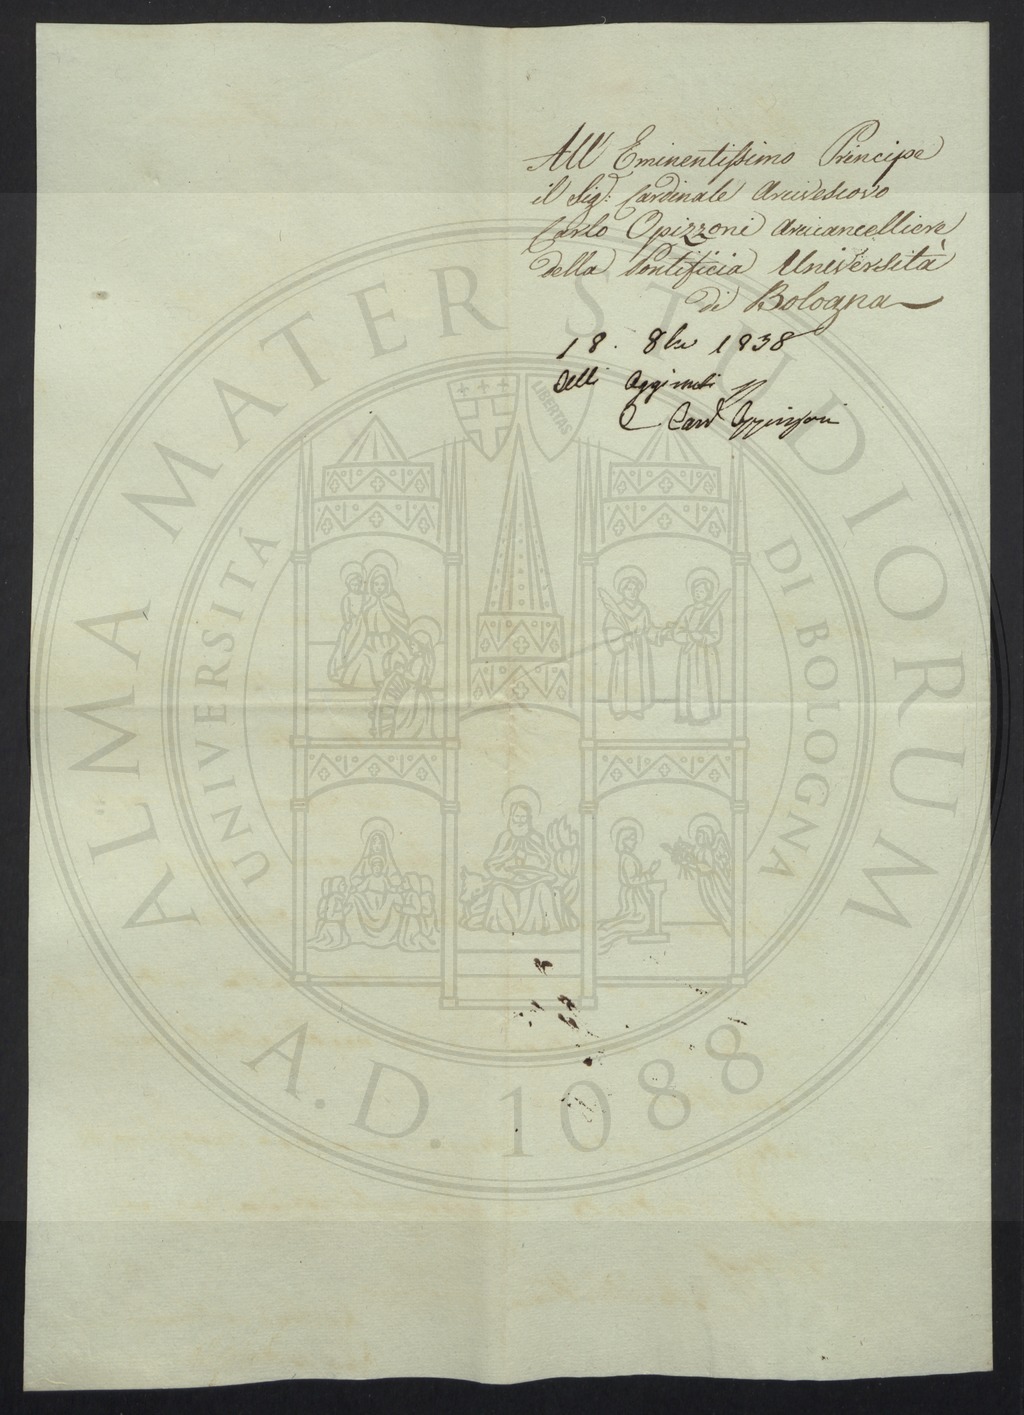 All' Eminentissimo Principe
il Sig.r Cardinale Arcivescovo
Carlo Opizzoni Arcicancelliere
della Pontificia Università
di Bologna
18. 8bre 1838
C Card Oppizzoni
ALMA MATER STUDIORUM
UNIVERSITÁ DI BOLOGNA
LIBERTAS
A.D. 1088